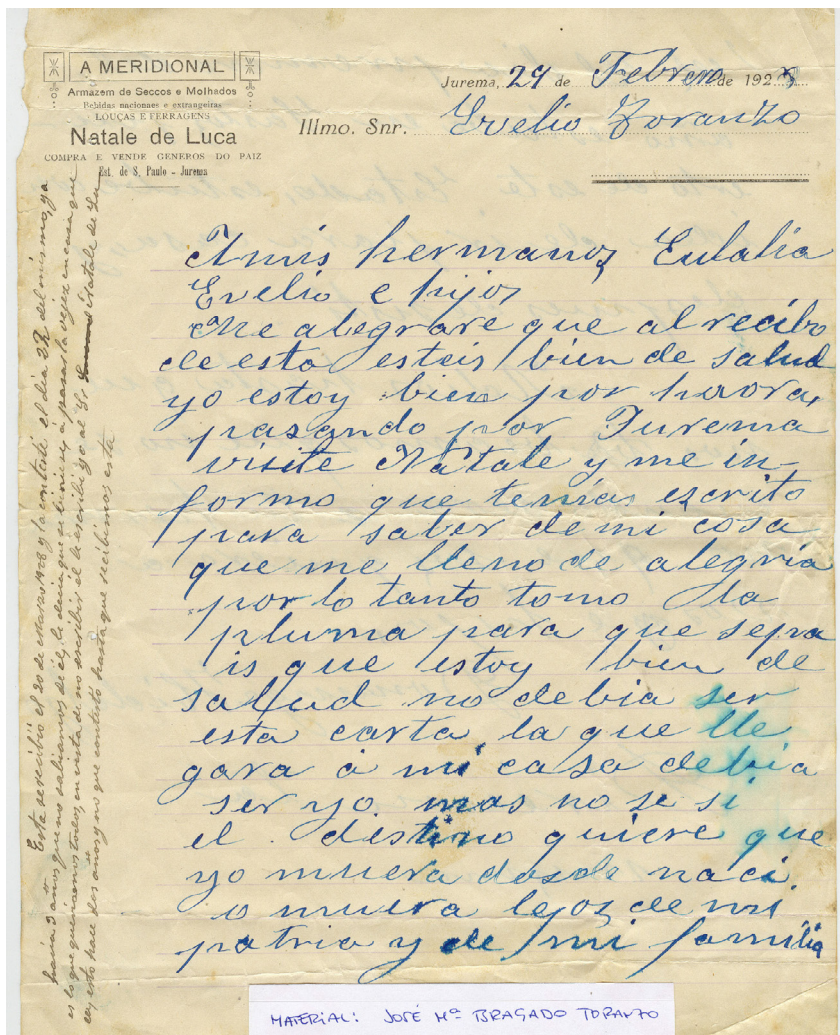 A MERIDIONAL
Armazem de Seccos e Molhados
Bebidas nacionaes e extrangeiras
LOUÇAS E FERRAGENS
Natale de Luca
COMPRA E VENDE GENEROS DO PAIZ
Est. de S. Paulo - Jurema
Jurema, 29 de Febrero de 1928
Illmo. Snr. Evelio Toranzo
A mis hermanos, Eulalia
Evelio e hijos
Me alegrare que al recibo
de esta esteis bien de salud
yo estoy bien por haora,
pasando por Jurema
visite Natale y me in-
formo que temias escrito
para saber de mi cosa
que me lleno de alegria
por lo tanto tomo la
pluma para que sepa
is que estoy bien de
salud no debia ser
esta carta la que lle
gara á mi casa debia
ser yo mas no se si
el destino quiere que
yo muera dosde naci
o muera lejos de mi
patria y de mi familia
Esta se recibió el 20 de Marzo 1928 y la contesté el dia 22 del mismo, ya
hacia 3 años que no sabiamos de él, le decia que se viniese, á pasar la vejez en casa que
es lo que queriamos todos, en vista de no escribir el la escribi yo al Sr. Natale de Lu
ca, esto hace dos años y no que contesto hasta que recibimos esta
MATERIAL: JOSÉ Mª BRAGADO TORANZO